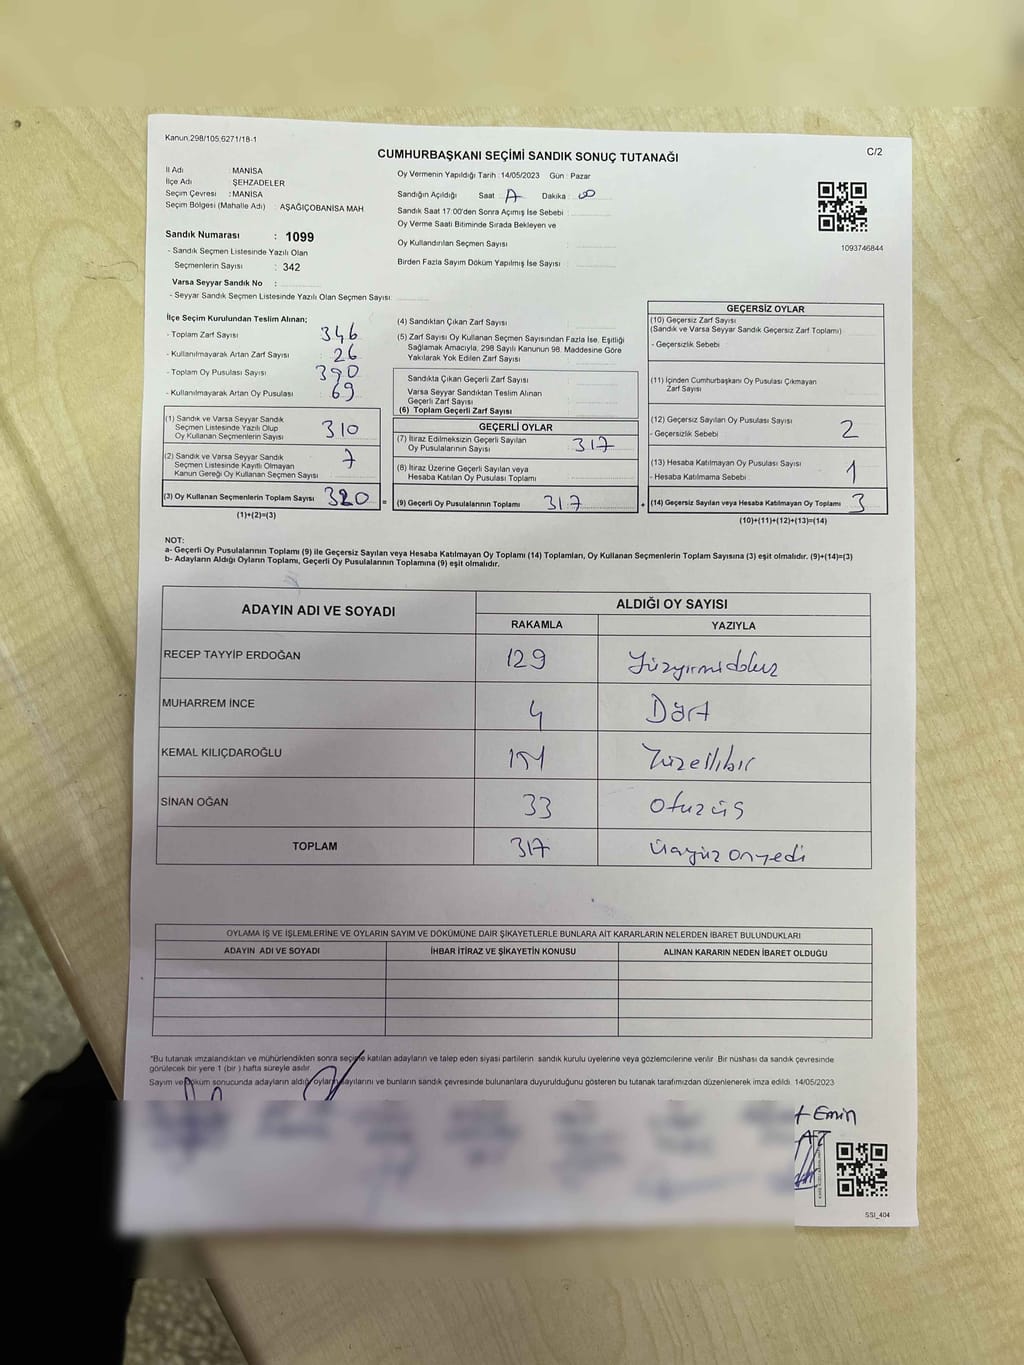 Kanun:298/105;6271/18-1
CUMHURBAŞKANI SEÇİMİ SANDIK SONUÇ TUTANAĞI
C/2
İl Adı : MANİSA
İlçe Adı : ŞEHZADELER
Seçim Çevresi : MANİSA
Seçim Bölgesi (Mahalle Adı) : AŞAĞIÇOBANİSA MAH
Oy Vermenin Yapıldığı Tarih : 14/05/2023 Gün : Pazar
Sandığın Açıldığı Saat : Dakika :
Sandık Saat 17:00'den Sonra Açımış İse Sebebi :
Oy Verme Saati Bitiminde Sırada Bekleyen ve
Oy Kullandırılan Seçmen Sayısı :
Birden Fazla Sayım Döküm Yapılmış İse Sayısı :
1093746844
Sandık Numarası : 1099
- Sandık Seçmen Listesinde Yazılı Olan
Seçmenlerin Sayısı : 342
Varsa Seyyar Sandık No :
- Seyyar Sandık Seçmen Listesinde Yazılı Olan Seçmen Sayısı:
İlçe Seçim Kurulundan Teslim Alınan;
- Toplam Zarf Sayısı : 346
- Kullanılmayarak Artan Zarf Sayısı : 26
- Toplam Oy Pusulası Sayısı : 390
- Kullanılmayarak Artan Oy Pusulası : 69
(1) Sandık ve Varsa Seyyar Sandık
Seçmen Listesinde Yazılı Olup
Oy Kullanan Seçmenlerin Sayısı : 310
(2) Sandık ve Varsa Seyyar Sandık
Seçmen Listesinde Kayıtlı Olmayan
Kanun Gereği Oy Kullanan Seçmen Sayısı : 7
(3) Oy Kullanan Seçmenlerin Toplam Sayısı : 320
(1)+(2)=(3)
=
(4) Sandıktan Çıkan Zarf Sayısı :
(5) Zarf Sayısı Oy Kullanan Seçmen Sayısından Fazla İse, Eşitliği
Sağlamak Amacıyla, 298 Sayılı Kanunun 98. Maddesine Göre
Yakılarak Yok Edilen Zarf Sayısı :
Sandıkta Çıkan Geçerli Zarf Sayısı :
Varsa Seyyar Sandıktan Teslim Alınan
Geçerli Zarf Sayısı :
(6) Toplam Geçerli Zarf Sayısı :
GEÇERLİ OYLAR
(7) İtiraz Edilmeksizin Geçerli Sayılan
Oy Pusulalarının Sayısı : 317
(8) İtiraz Üzerine Geçerli Sayılan veya
Hesaba Katılan Oy Pusulası Toplamı :
(9) Geçerli Oy Pusulalarının Toplamı : 317
+
GEÇERSİZ OYLAR
(10) Geçersiz Zarf Sayısı
(Sandık ve Varsa Seyyar Sandık Geçersiz Zarf Toplamı)
- Geçersizlik Sebebi :
(11) İçinden Cumhurbaşkanı Oy Pusulası Çıkmayan
Zarf Sayısı :
(12) Geçersiz Sayılan Oy Pusulası Sayısı : 2
- Geçersizlik Sebebi :
(13) Hesaba Katılmayan Oy Pusulası Sayısı : 1
- Hesaba Katılmama Sebebi :
(14) Geçersiz Sayılan veya Hesaba Katılmayan Oy Toplamı : 3
(10)+(11)+(12)+(13)=(14)
NOT:
a- Geçerli Oy Pusulalarının Toplamı (9) ile Geçersiz Sayılan veya Hesaba Katılmayan Oy Toplamı (14) Toplamları, Oy Kullanan Seçmenlerin Toplam Sayısına (3) eşit olmalıdır. (9)+(14)=(3)
b- Adayların Aldığı Oyların Toplamı, Geçerli Oy Pusulalarının Toplamına (9) eşit olmalıdır.
ADAYIN ADI VE SOYADI
ALDIĞI OY SAYISI
RAKAMLA YAZIYLA
RECEP TAYYİP ERDOĞAN 129 Yüzyirmidokuz
MUHARREM İNCE 4 Dört
KEMAL KILIÇDAROĞLU 151 Yüzellibir
SİNAN OĞAN 33 Otuzüç
TOPLAM 317 Üçyüz onyedi
OYLAMA İŞ VE İŞLEMLERİNE VE OYLARIN SAYIM VE DÖKÜMÜNE DAİR ŞİKAYETLERLE BUNLARA AİT KARARLARIN NELERDEN İBARET BULUNDUKLARI
ADAYIN ADI VE SOYADI İHBAR İTİRAZ VE ŞİKAYETİN KONUSU ALINAN KARARIN NEDEN İBARET OLDUĞU
"Bu tutanak imzalandıktan ve mühürlendikten sonra seçime katılan adayların ve talep eden siyasi partilerin sandık kurulu üyelerine veya gözlemcilerine verilir. Bir nüshası da sandık çevresinde
görülecek bir yere 1 (bir) hafta süreyle asılır.
Sayım ve döküm sonucunda adayların aldığı oyların sayılarını ve bunların sandık çevresinde bulunanlara duyurulduğunu gösteren bu tutanak tarafımızdan düzenlenerek imza edildi. 14/05/2023
Emin
SSI_404